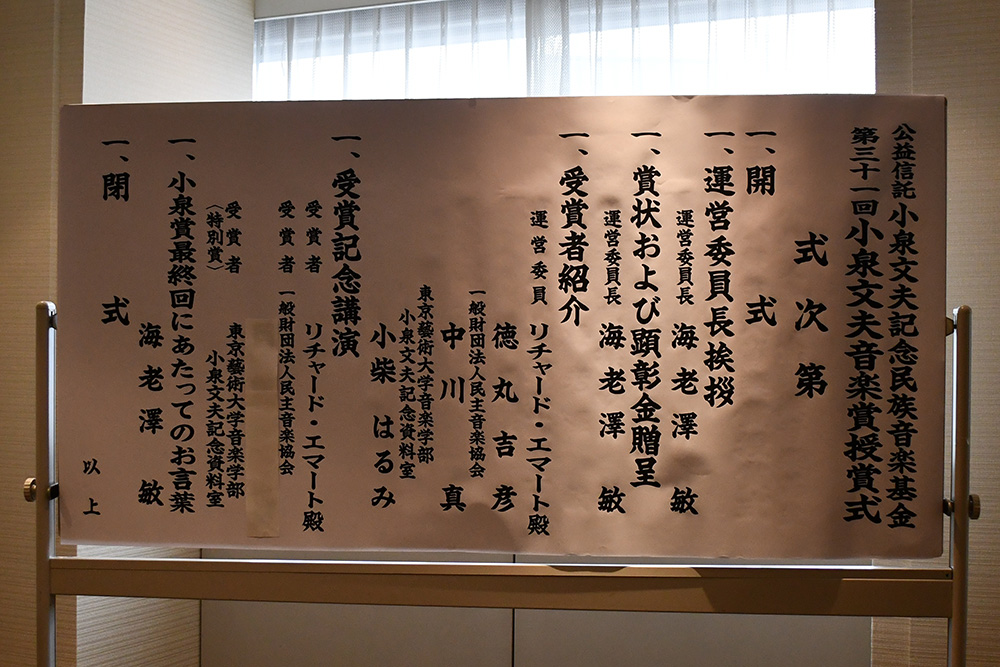 公益信託 小泉文夫記念民族音楽基金
第三十一回小泉文夫音楽賞授賞式
式次第
一、開式
一、運営委員長挨拶
運営委員長 海老澤敏
一、賞状および顕彰金贈呈
運営委員長 海老澤敏
一、受賞者紹介
運営委員 リチャード・エマート殿
徳丸吉彦
一般財団法人民主音楽協会
中川真
東京藝術大学音楽学部
小泉文夫記念資料室
小柴はるみ
一、受賞記念講演
受賞者 リチャード・エマート殿
受賞者 一般財団法人民主音楽協会
受賞者 東京藝術大学音楽学部
〈特別賞〉 小泉文夫記念資料室
一、小泉賞最終回にあたってのお言葉
海老澤敏
一、閉式
以上